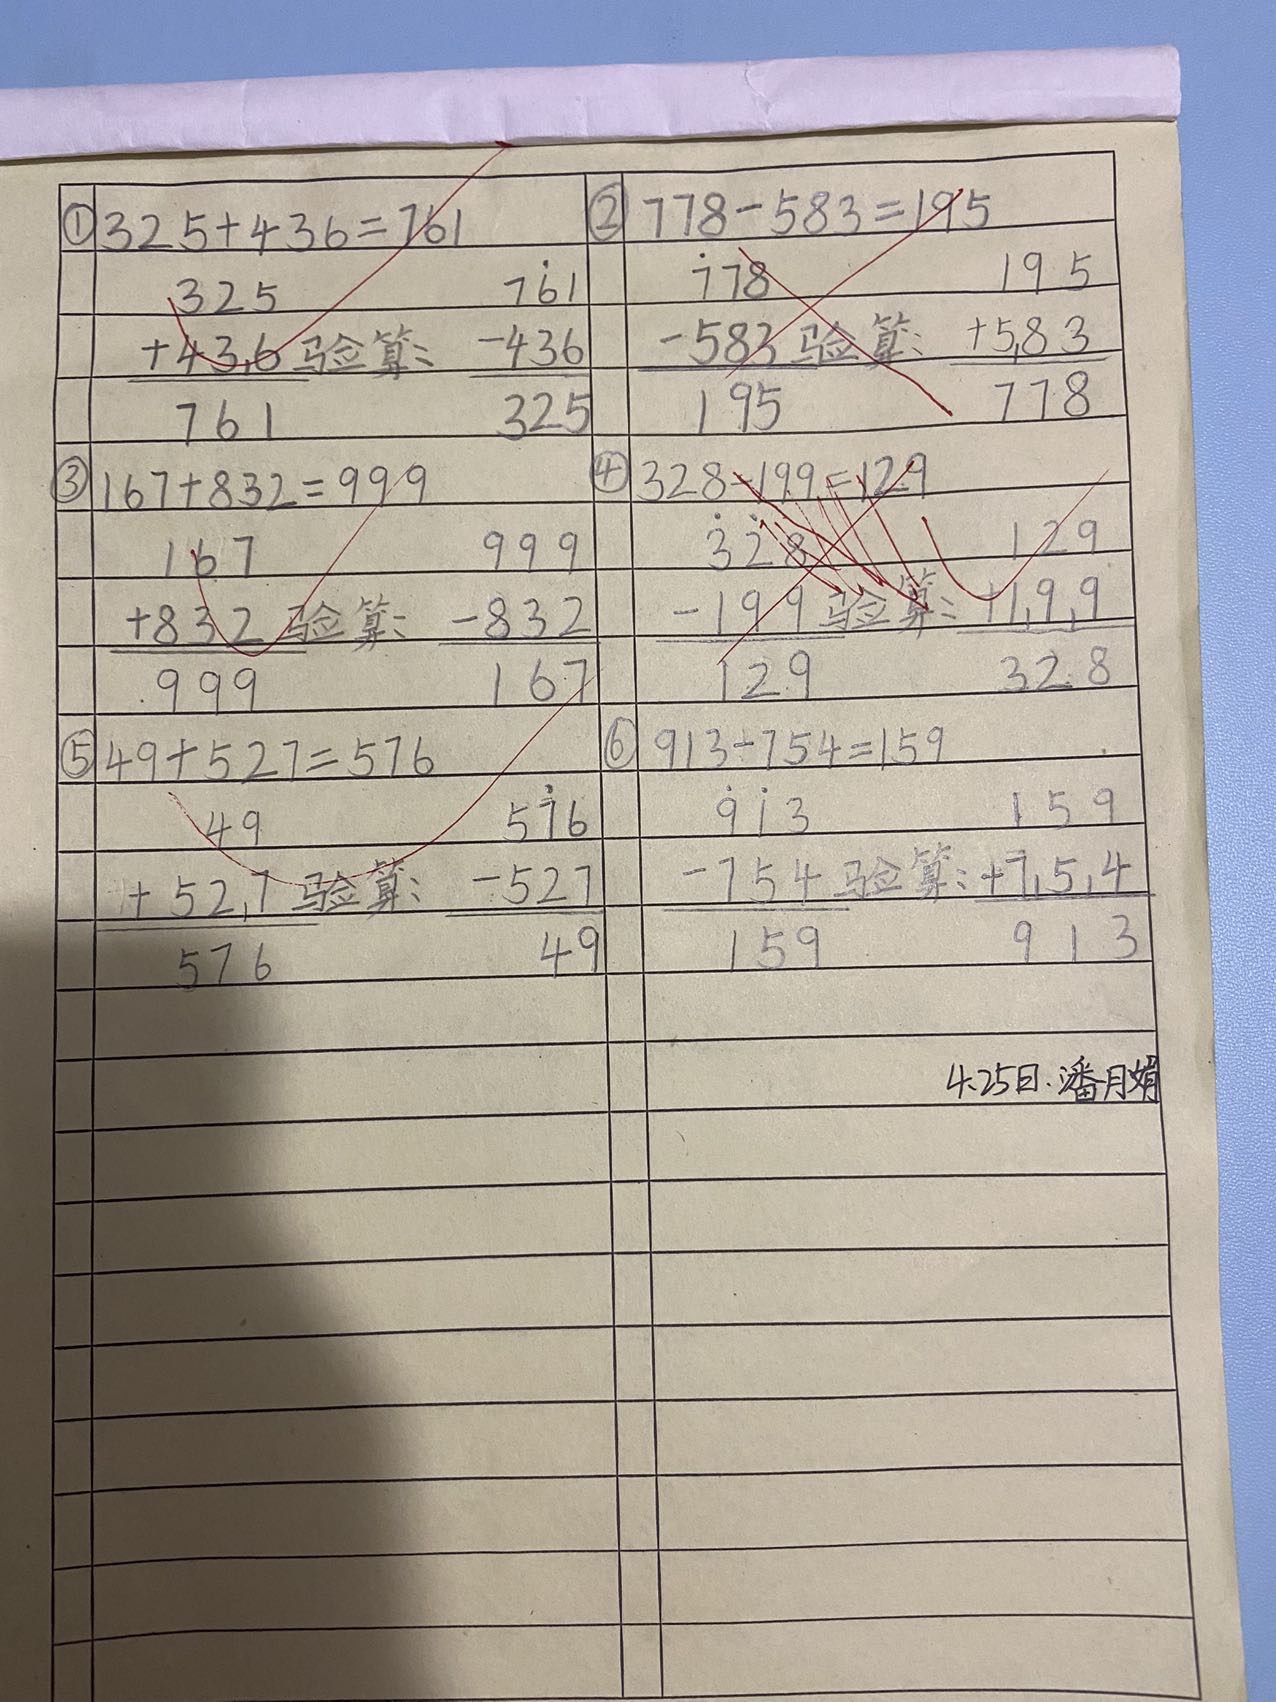 ① 325+436=761
325 761
+436 验算: -436
761 325
② 778-583=195
778 195
-583 验算: +583
195 778
③ 167+832=999
167 999
+832 验算: -832
999 167
④ 328-199=129
328 129
-199 验算: +199
129 328
⑤ 49+527=576
49 576
+527 验算: -527
576 49
⑥ 913-754=159
913 159
-754 验算: +754
159 913
4.25日.潘月娟